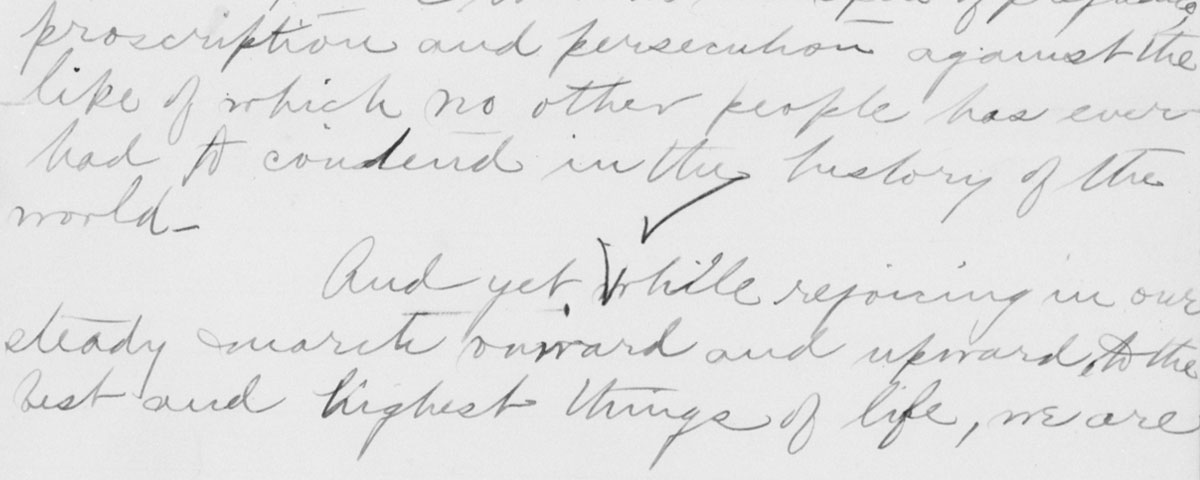 of prejudice,
proscription and persecution against the
like of which no other people has ever
had to condend in the history of the
world—
And yet, while rejoicing in our
steady march onward and upward, to the
best and highest things of life, we are